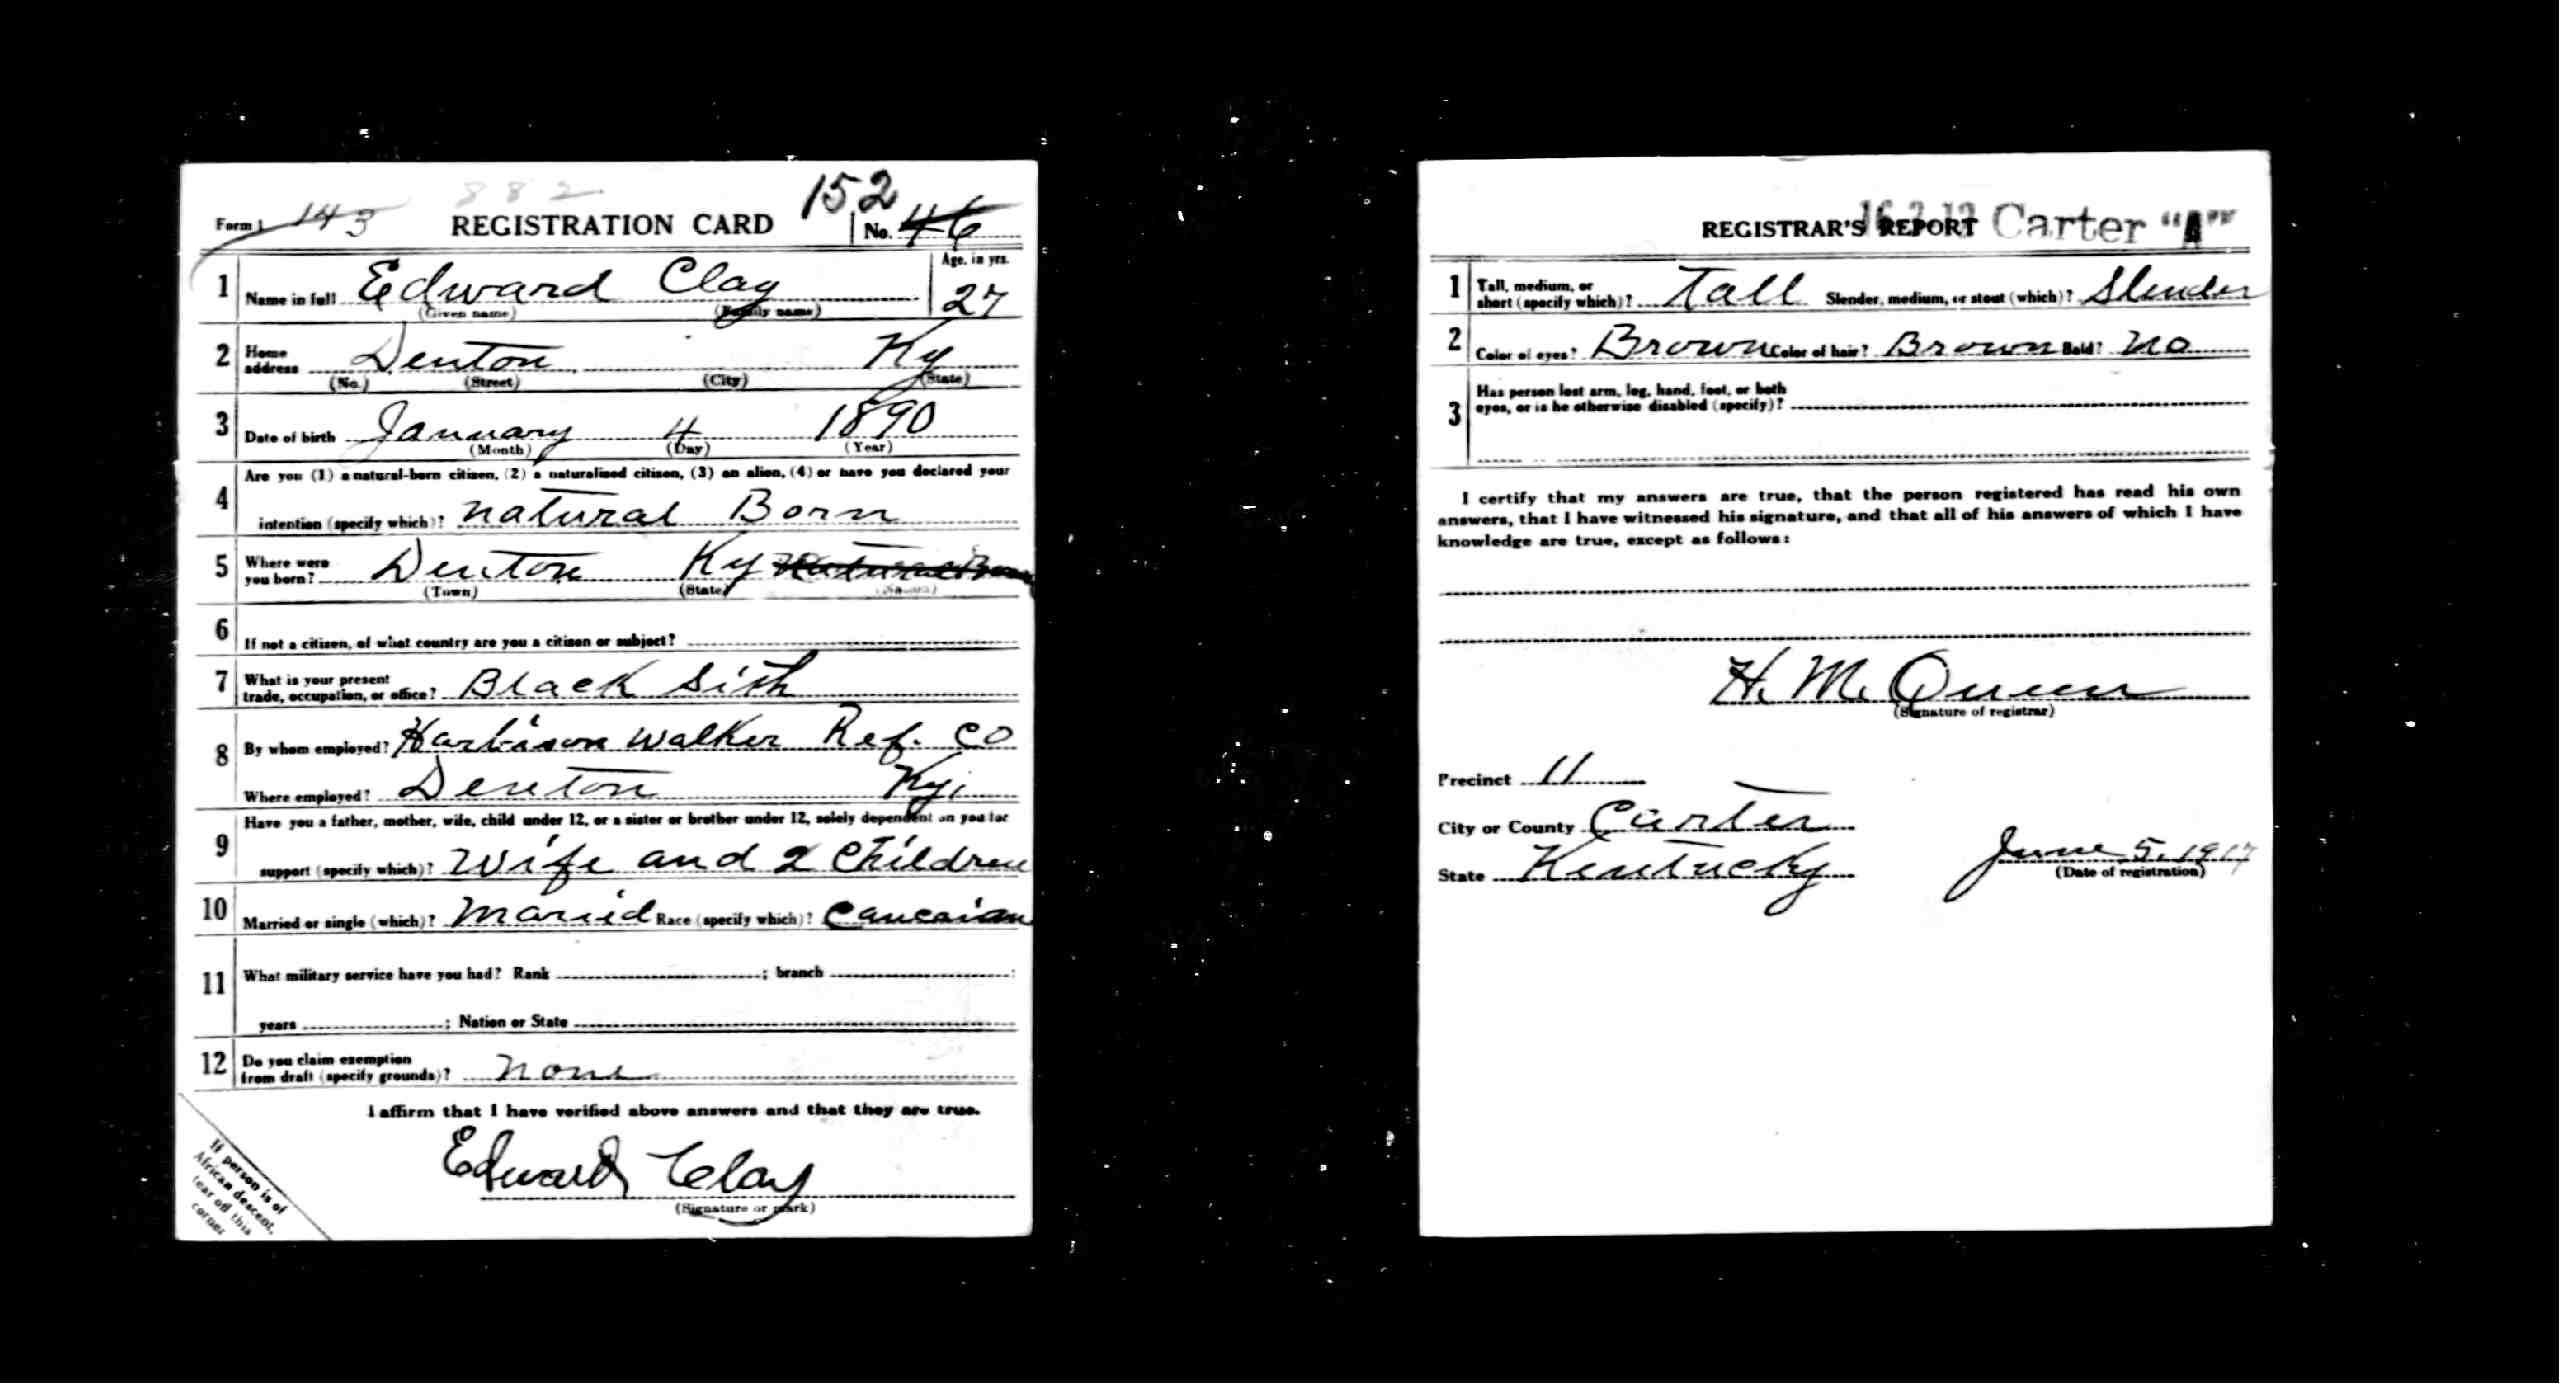 882
152
Form 1 143 REGISTRATION CARD No. 46
1 Name in full Edward Clay Age, in yrs. 27
(Given name) (Family name)
2 Home address Denton Ky
(No.) (Street) (City) (State)
3 Date of birth January 4 1890
(Month) (Day) (Year)
4 Are you (1) a natural-born citizen, (2) a naturalized citizen, (3) an alien, (4) or have you declared your
intention (specify which)? natural Born
5 Where were you born? Denton Ky Natural Born
(Town) (State) (Nation)
6 If not a citizen, of what country are you a citizen or subject?
7 What is your present trade, occupation, or office? Black Sith
8 By whom employed? Harbison Walker Ref. Co
Where employed? Denton Ky.
9 Have you a father, mother, wife, child under 12, or a sister or brother under 12, solely dependent on you for
support (specify which)? Wife and 2 Children
10 Married or single (which)? Maried Race (specify which)? Caucaian
11 What military service have you had? Rank ; branch ;
years ; Nation or State
12 Do you claim exemption from draft (specify grounds)? none
I affirm that I have verified above answers and that they are true.
Edward Clay
(Signature or mark)
If person is of
African descent,
tear off this
corner
REGISTRAR'S REPORT Carter "A"
1 Tall, medium, or short (specify which)? Tall Slender, medium, or stout (which)? Slender
2 Color of eyes? Brown Color of hair? Brown Bald? no
3 Has person lost arm, leg, hand, foot, or both
eyes, or is he otherwise disabled (specify)?
I certify that my answers are true, that the person registered has read his own
answers, that I have witnessed his signature, and that all of his answers of which I have
knowledge are true, except as follows:
H. M. Queen
(Signature of registrar)
Precinct 11
City or County Carter
State Kentucky June 5, 1917
(Date of registration)